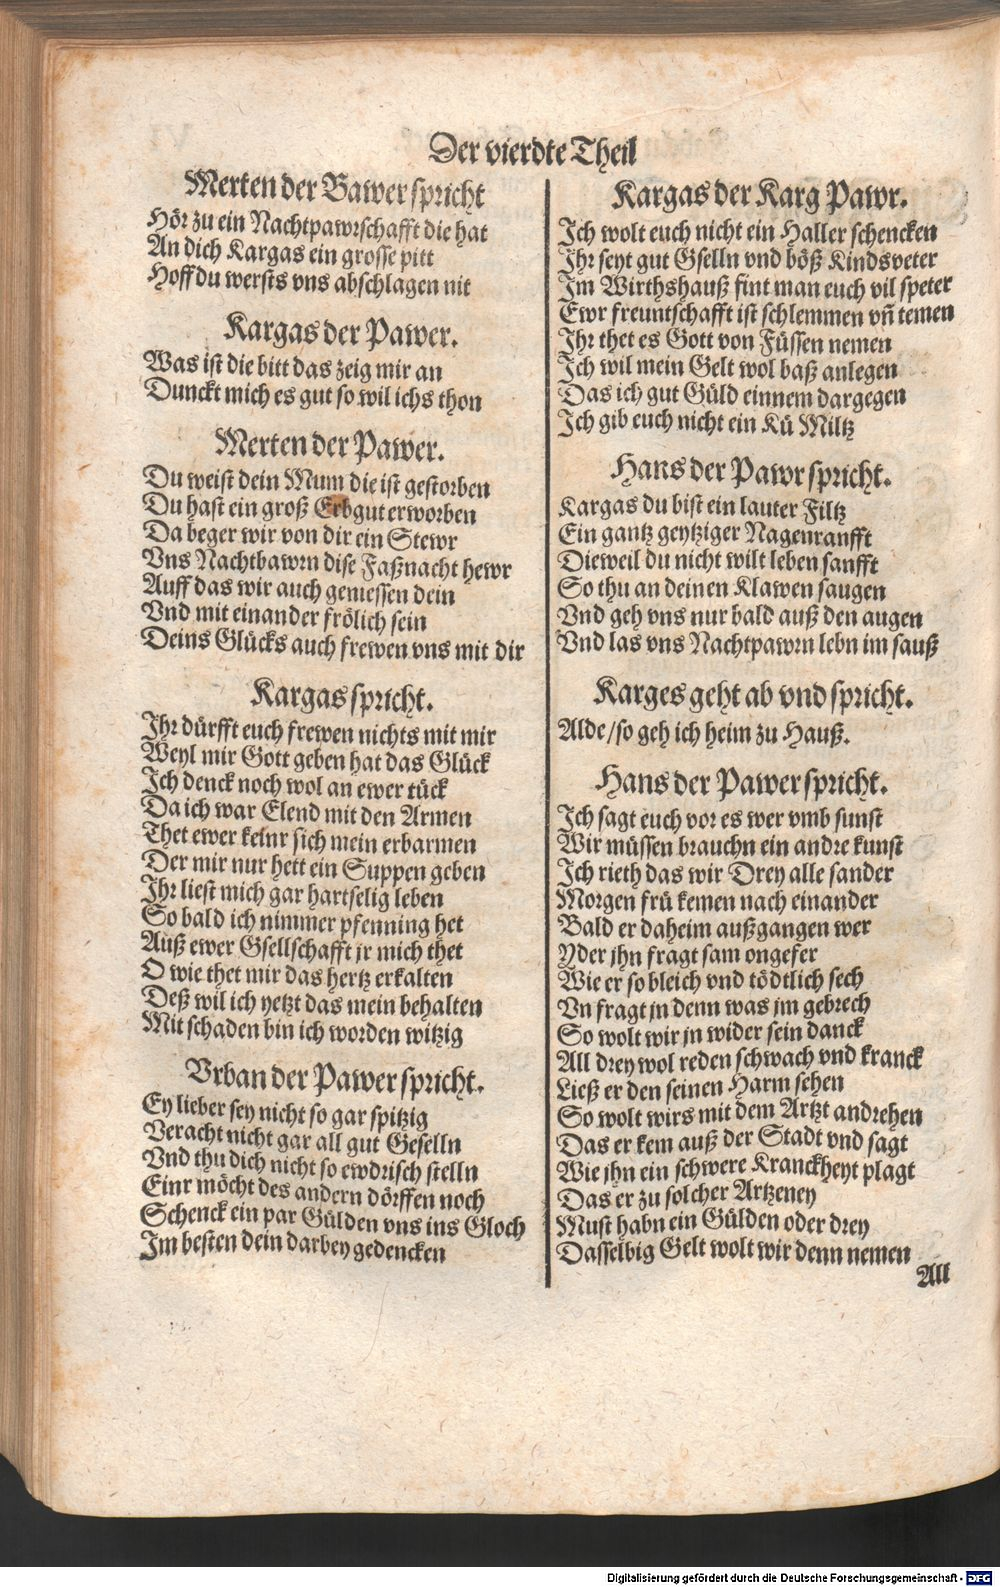 Der vierdte Theil
Merten der Bawer spricht
Hör zu ein Nachtpawrschafft die hat
An dich Kargas ein grosse pitt
Hoff du wersts vns abschlagen nit
Kargas der Pawer.
Was ist die bitt das zeig mir an
Dunckt mich es gut so wil ichs thon
Merten der Pawer.
Du weist dein Mum die ist gestorben
Du hast ein groß Erbgut erworben
Da beger wir von dir ein Stewr
Vns Nachtbawrn dise Faßnacht hewr
Auff das wir auch geniessen dein
Vnd mit einander frölich sein
Deins Glücks auch frewen vns mit dir
Kargas spricht.
Ihr dürfft euch frewen nichts mit mir
Weyl mir Gott geben hat das Glück
Ich denck noch wol an ewer tück
Da ich war Elend mit den Armen
Thet ewer keinr sich mein erbarmen
Der mir nur hett ein Suppen geben
Ihr liest mich gar hartselig leben
So bald ich nimmer pfenning het
Auß ewer Gsellschafft jr mich thet
O wie thet mir das hertz erkalten
Deß wil ich yetzt das mein behalten
Mit schaden bin ich worden witzig
Vrban der Pawer spricht.
Ey lieber sey nicht so gar spitzig
Veracht nicht gar all gut Geselln
Vnd thu dich nicht so ewdrisch stelln
Einr möcht des andern dörffen noch
Schenck ein par Gülden vns ins Gloch
Im besten dein darbey gedencken
Kargas der Karg Pawr.
Ich wolt euch nicht ein Haller schencken
Ihr seyt gut Gselln vnd böß Kindsveter
Im Wirthshauß fint man euch vil speter
Ewr freuntschafft ist schlemmen vñ temen
Ihr thet es Gott von Füssen nemen
Ich wil mein Gelt wol baß anlegen
Das ich gut Güld einnem dargegen
Ich gib euch nicht ein Kü Miltz
Hans der Pawr spricht.
Kargas du bist ein lauter Filtz
Ein gantz geytziger Nagenranfft
Dieweil du nicht wilt leben sanfft
So thu an deinen Klawen saugen
Vnd geh vns nur bald auß den augen
Vnd las vns Nachtpawrn lebn im sauß
Karges geht ab vnd spricht.
Alde/so geh ich heim zu Hauß.
Hans der Pawer spricht.
Ich sagt euch vor es wer vmb sunst
Wir müssen brauchn ein andre kunst
Ich rieth das wir Drey alle sander
Morgen frü kemen nach einander
Bald er daheim außgangen wer
Yder jhn fragt sam ongefer
Wie er so bleich vnd tödtlich sech
Vn fragt jn denn was jm gebrech
So wolt wir jn wider sein danck
All drey wol reden schwach vnd kranck
Ließ er den seinen Harm sehen
So wolt wirs mit dem Artzt andrehen
Das er kem auß der Stadt vnd sagt
Wie jhn ein schwere Kranckheyt plagt
Das er zu solcher Artzeney
Must habn ein Gülden oder drey
Dasselbig Gelt wolt wir denn nemen
All
Digitalisierung gefördert durch die Deutsche Forschungsgemeinschaft - DFG